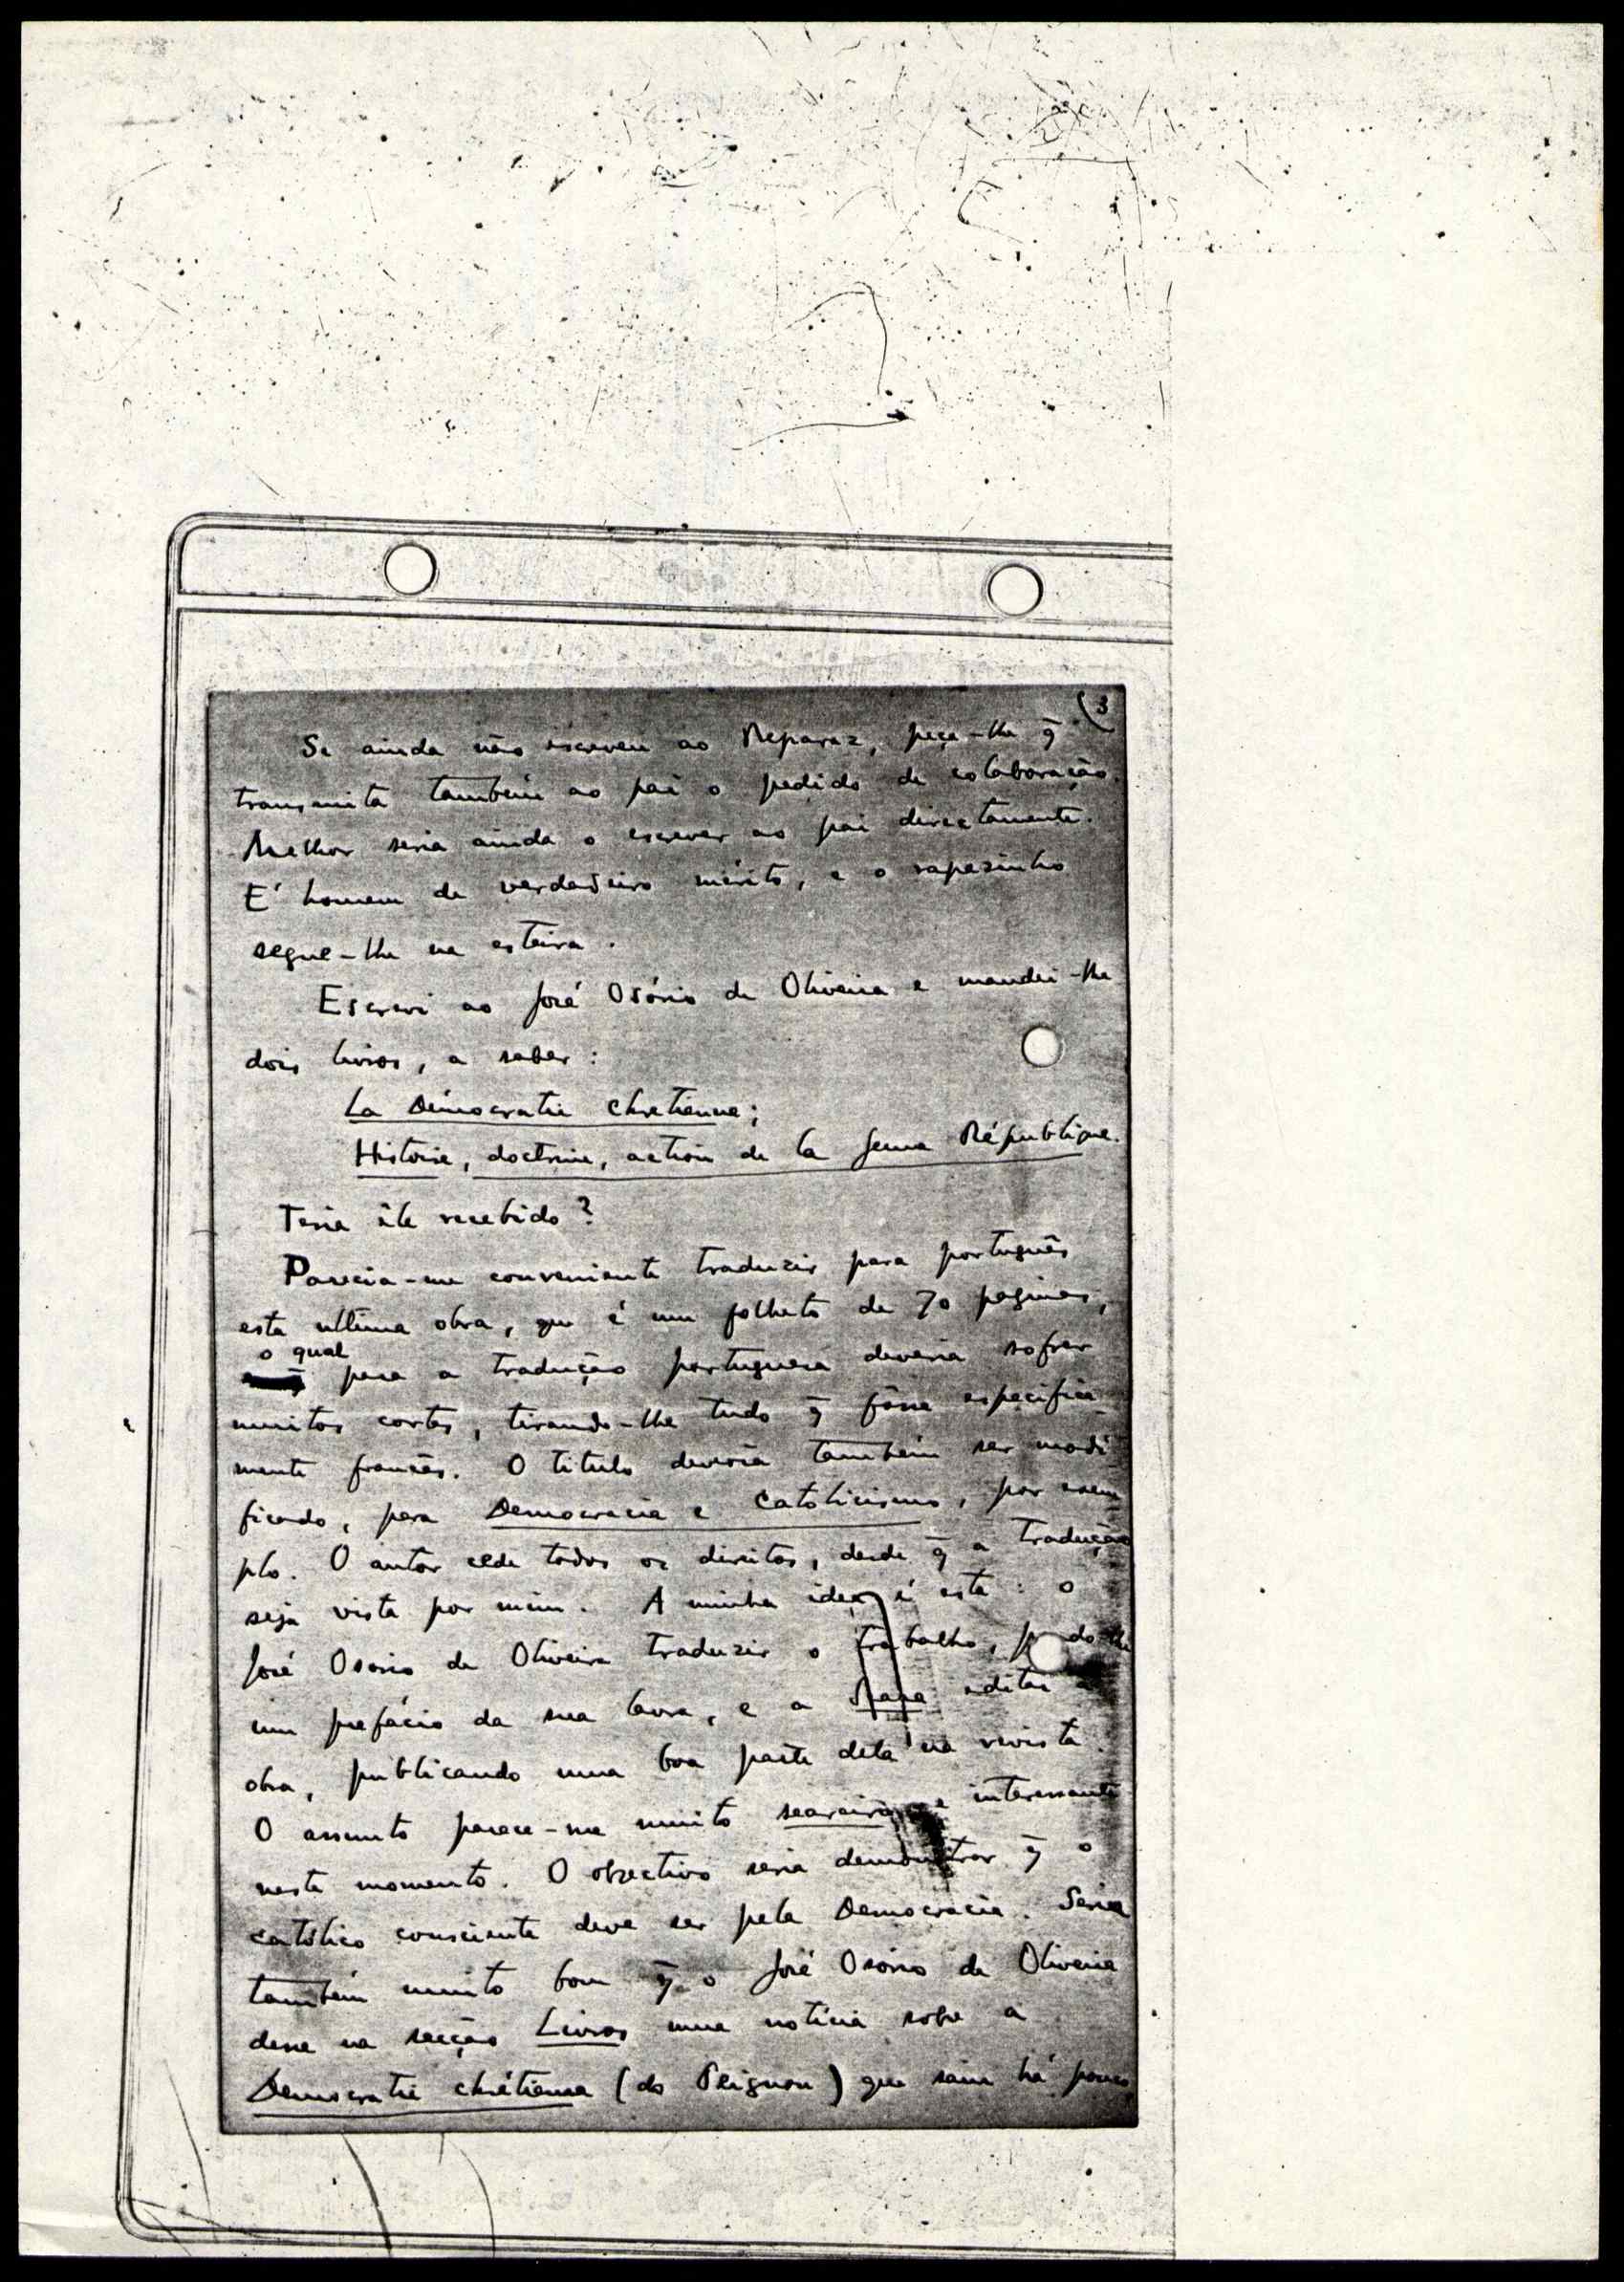 (3
Se ainda não escreveu ao Reparaz, peça-lhe q̄
transmita também ao pai o pedido de colaboração.
Melhor seria ainda o escrever ao pai directamente.
E' homem de verdadeiro mérito, e o rapazinho
segue-lhe na esteira.
Escrevi ao José Osório de Oliveira e mandei-lhe
dois livros, a saber:
La Démocratie chretienne;
Histoire, doctrine, action de la Jeune République.
Teria êle recebido?
Parecia-me conveniente traduzir para português
esta ultima obra, que é um folheto de 70 paginas,
o qual
para a tradução portuguesa deveria sofrer
muitos cortes, tirando-lhe tudo q̄ fôsse especifica-
mente francês. O titulo deveria também ser modi-
ficado, para Democracia e Catolicismo, por exem-
plo. O autor cede todos os direitos, desde q̄ a tradução
seja vista por mim. A minha idea é esta: o
José Osorio de Oliveira traduzir o trabalho,
um prefácio da sua lavra, e a Seara editar
obra, publicando uma boa parte dela na revista.
O assunto parece-me muito seareiro e interessante
neste momento. O objectivo seria demonstrar q̄ o
católico consciente deve ser pela Democracia. Seria
também muito bom q̄ o José Osório de Oliveira
desse na secção Livros uma notícia sobre a
Democratie chrétienne (do Peignon) que saiu há pouco